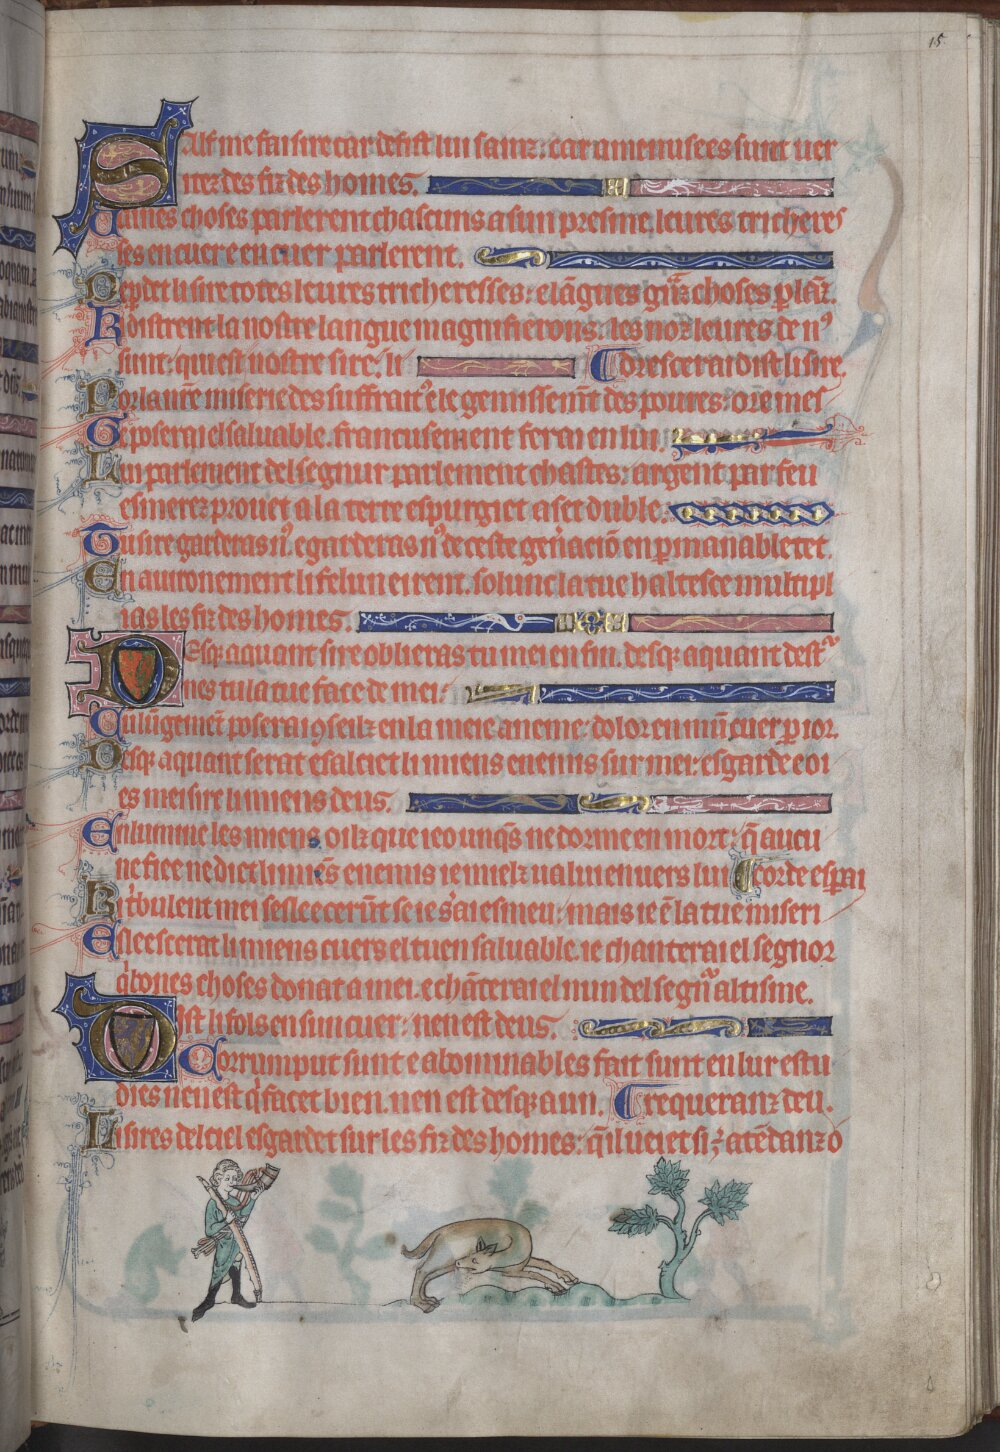 15
Salf me fai sire car defist lui sainz: car amenusees sunt uer
itez des fiz des homes.
Uaines choses parlerent chascuns a sun presme. leures tricheres
ses en cuer e en cuer parlerent.
Depdet li sire totes leures tricheresses: e lãgues grãz choses plãz.
Ki distrent la nostre langue magnifierons: les noz leures de nꝰ
sunt: qui est nostre sire. li Coresceraidist li sire.
Por la miserie des suffraitꝰ e le gemissemt des poures: ore mes
Ge poserai el saluable. francusement ferai en lui.
Lui parlement del segnur parlement chastes: argent par feu
esmerez prouet a la terre espurgiet a set duble.
Tu sire garderas nꝰ. e garderas nꝰ de ceste gen'aciõ en pmanabletet.
En auironement li felun eirent. solunc la tue haltesce multipl
ias les fiz des homes.
Desqꝫ a quant sire oblieras tu mei en fin. desqꝫ a quant dest
nes tu la tue face de mei:
Cu lũgemẽt poserai ꝯseilz en la meie aneme: dolor en mũ cuer p ior.
Desqꝫ a quant serat esalciet li miens enemis sur mei: esgarde e oi
es mei sire li miens deus.
Enlumine les miens oilz que ieo unqs ne dorme en mort: q̃ aucu
ne fiee ne diet li miẽs enemis ie mielz ualui enuers lui Corde espai
Ki t'bulent mei sesleecerũt se ie s'ai esmeu: mais ie ẽ la tue miseri
Esleescerat li miens cuers el tuen saluable. ie chanterai el segnor
q' bones choses donat a mei. e chãterai el nun del segnr altisme.
Dist li fols en sun cuer: nen est deus.
Corrumput sunt e abominables fait sunt en lur estu
dies nen est q' facet bien. nen est desqꝫ a un. Crequeranz deu.
Li sires del ciel esgardet sur les fiz des homes: q̃ il ueiet si ⁊ atẽdanz o